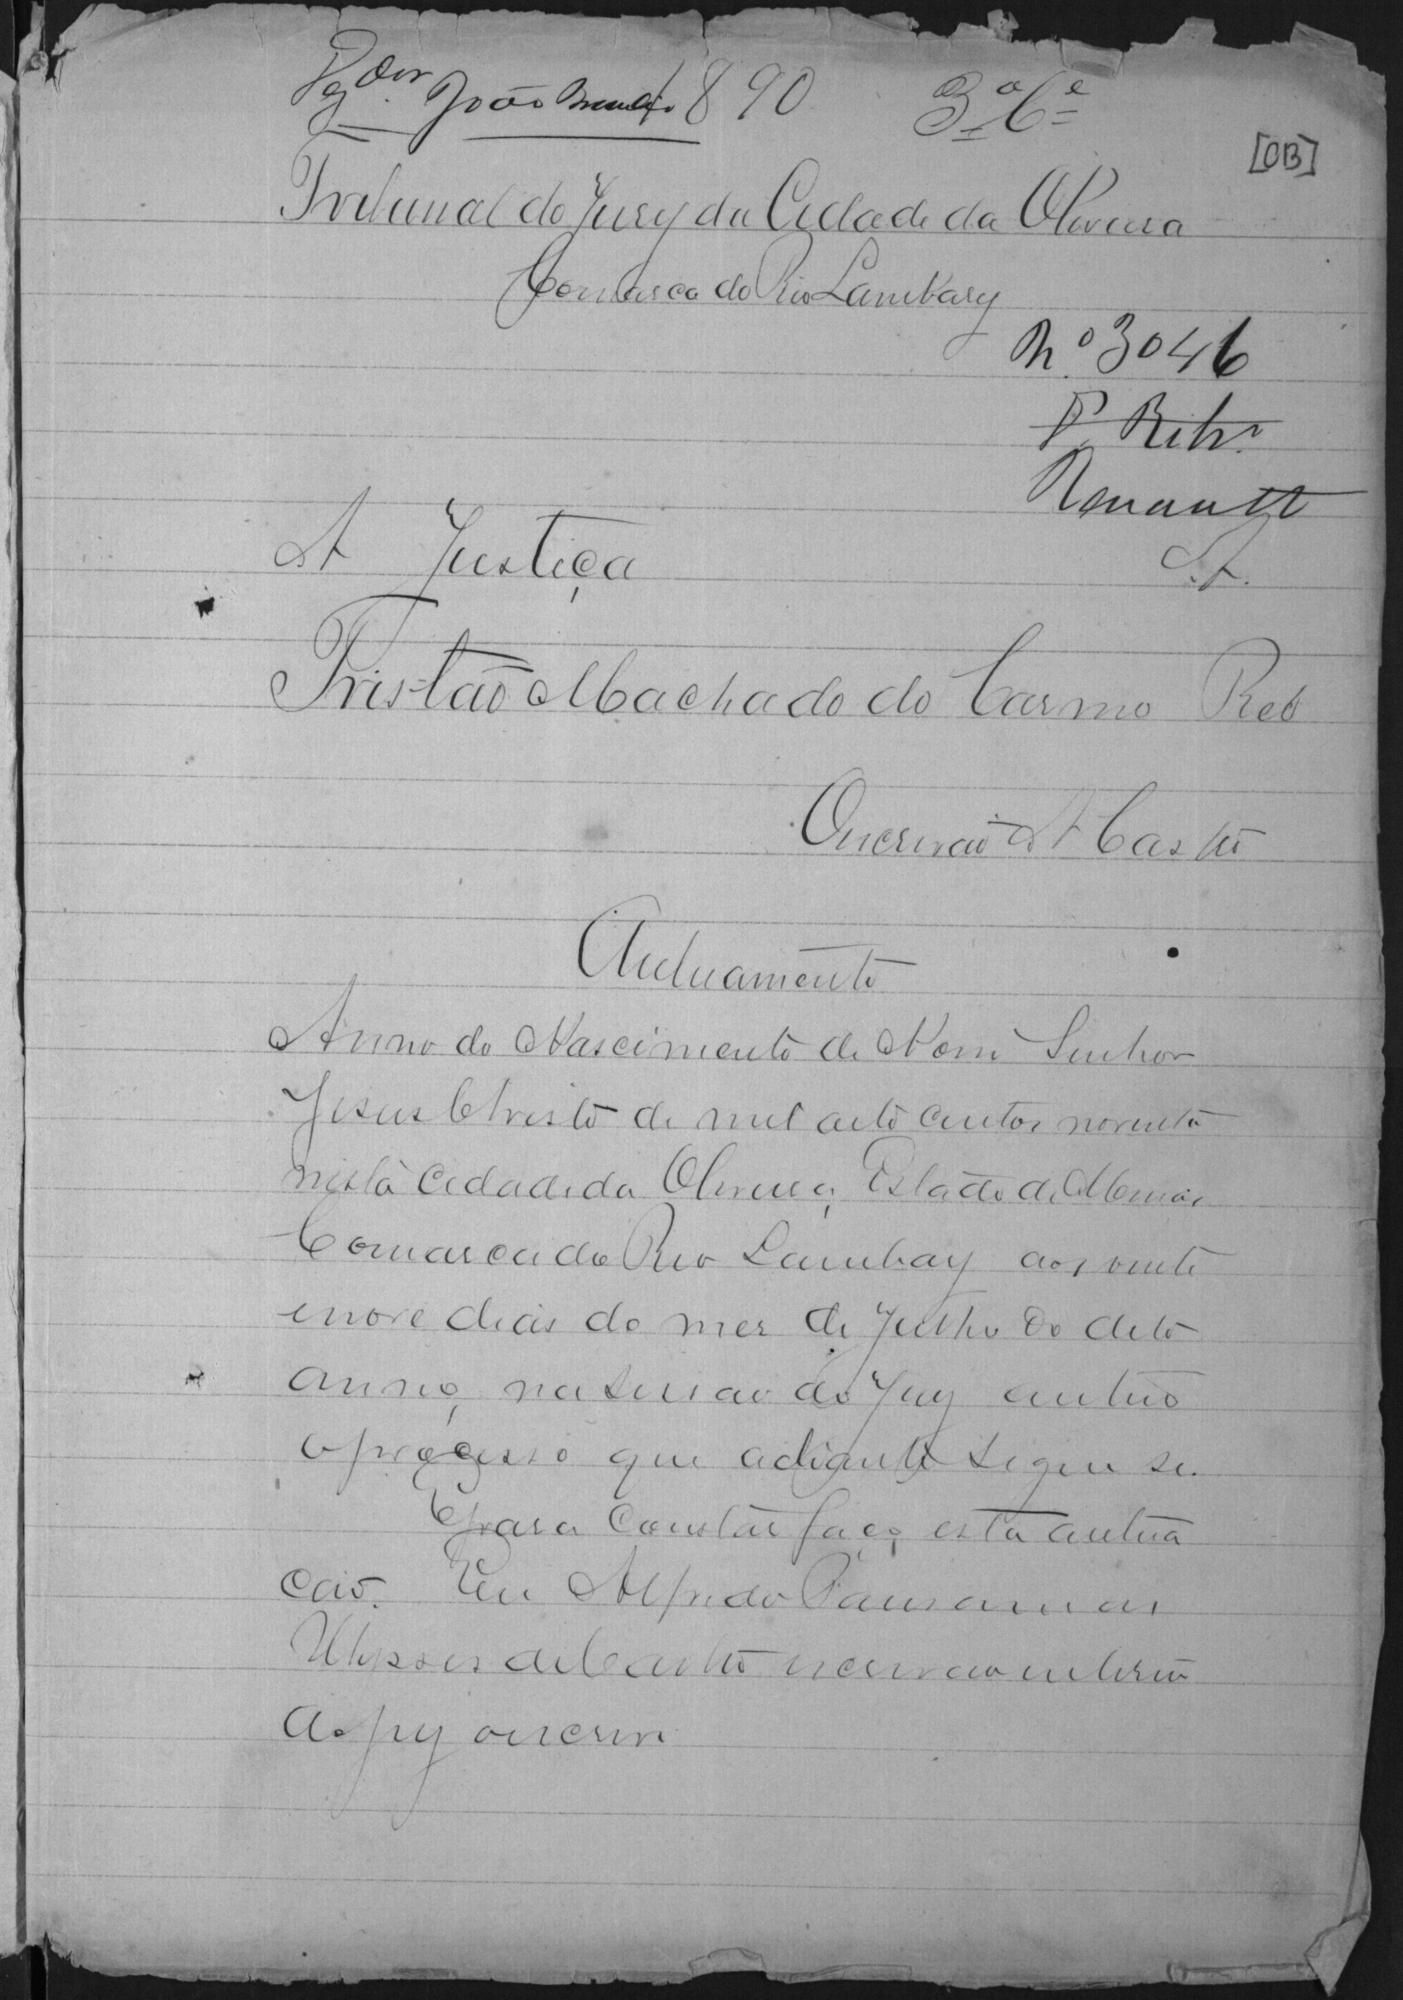 João 1890 3ª 6ª
[OB]
Tribunal do Jury da Cidade da Oliveira
Comarca do Rio Lambary
Nº 3046
P. Ribrº
Renault
A Justiça A.
Tristão Machado do Carmo Reo
Oescrivão A Castro
Autuamento
Anno do Nascimento de Nosso Senhor
Jesus Christo de mil oito centos noventa
nesta Cidade da Oliveira, Estado de Minas
Comarca do Rio Lambay aos vinte
e nove dias do mez de Julho do dito
anno, na sessão do Jury autuo
o processo que adiante segue se.
E para constar faço esta autua
ção. Eu Alfredo Pausanias
Ulysses de Castro escrivão interino
do jury oescrivi